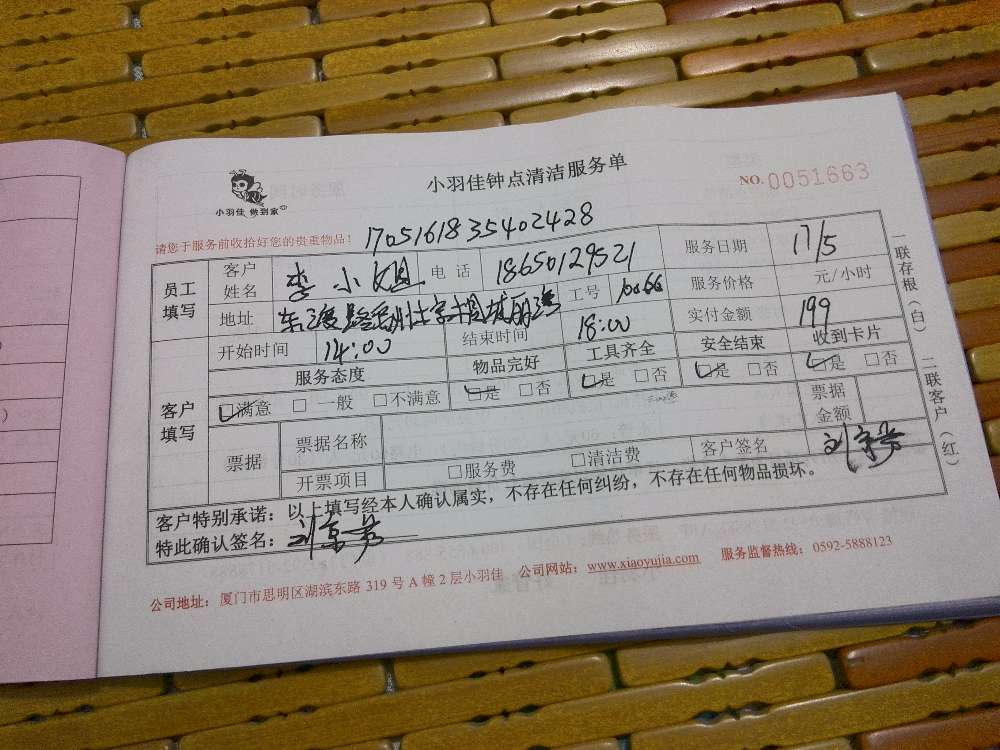 小羽佳 做到家
小羽佳钟点清洁服务单
NO.0051663
请您于服务前收拾好您的贵重物品！ 1705161835402428
员工填写 客户姓名 李小姐 电话 18650129521 服务日期 17/5
地址 东渡路 工号 服务价格 元/小时
开始时间 14:00 结束时间 18:00 实付金额 199
客户填写 服务态度 物品完好 工具齐全 安全结束 收到卡片
☑满意 □一般 □不满意 ☑是 □否 ☑是 □否 ☑是 □否 ☑是 □否
票据 票据名称 票据金额
开票项目 □服务费 □清洁费 客户签名
客户特别承诺：以上填写经本人确认属实，不存在任何纠纷，不存在任何物品损坏。
特此确认签名：
一联存根（白） 二联客户（红）
公司地址：厦门市思明区湖滨东路319号A幢2层小羽佳 公司网站：www.xiaoyujia.com 服务监督热线：0592-5888123